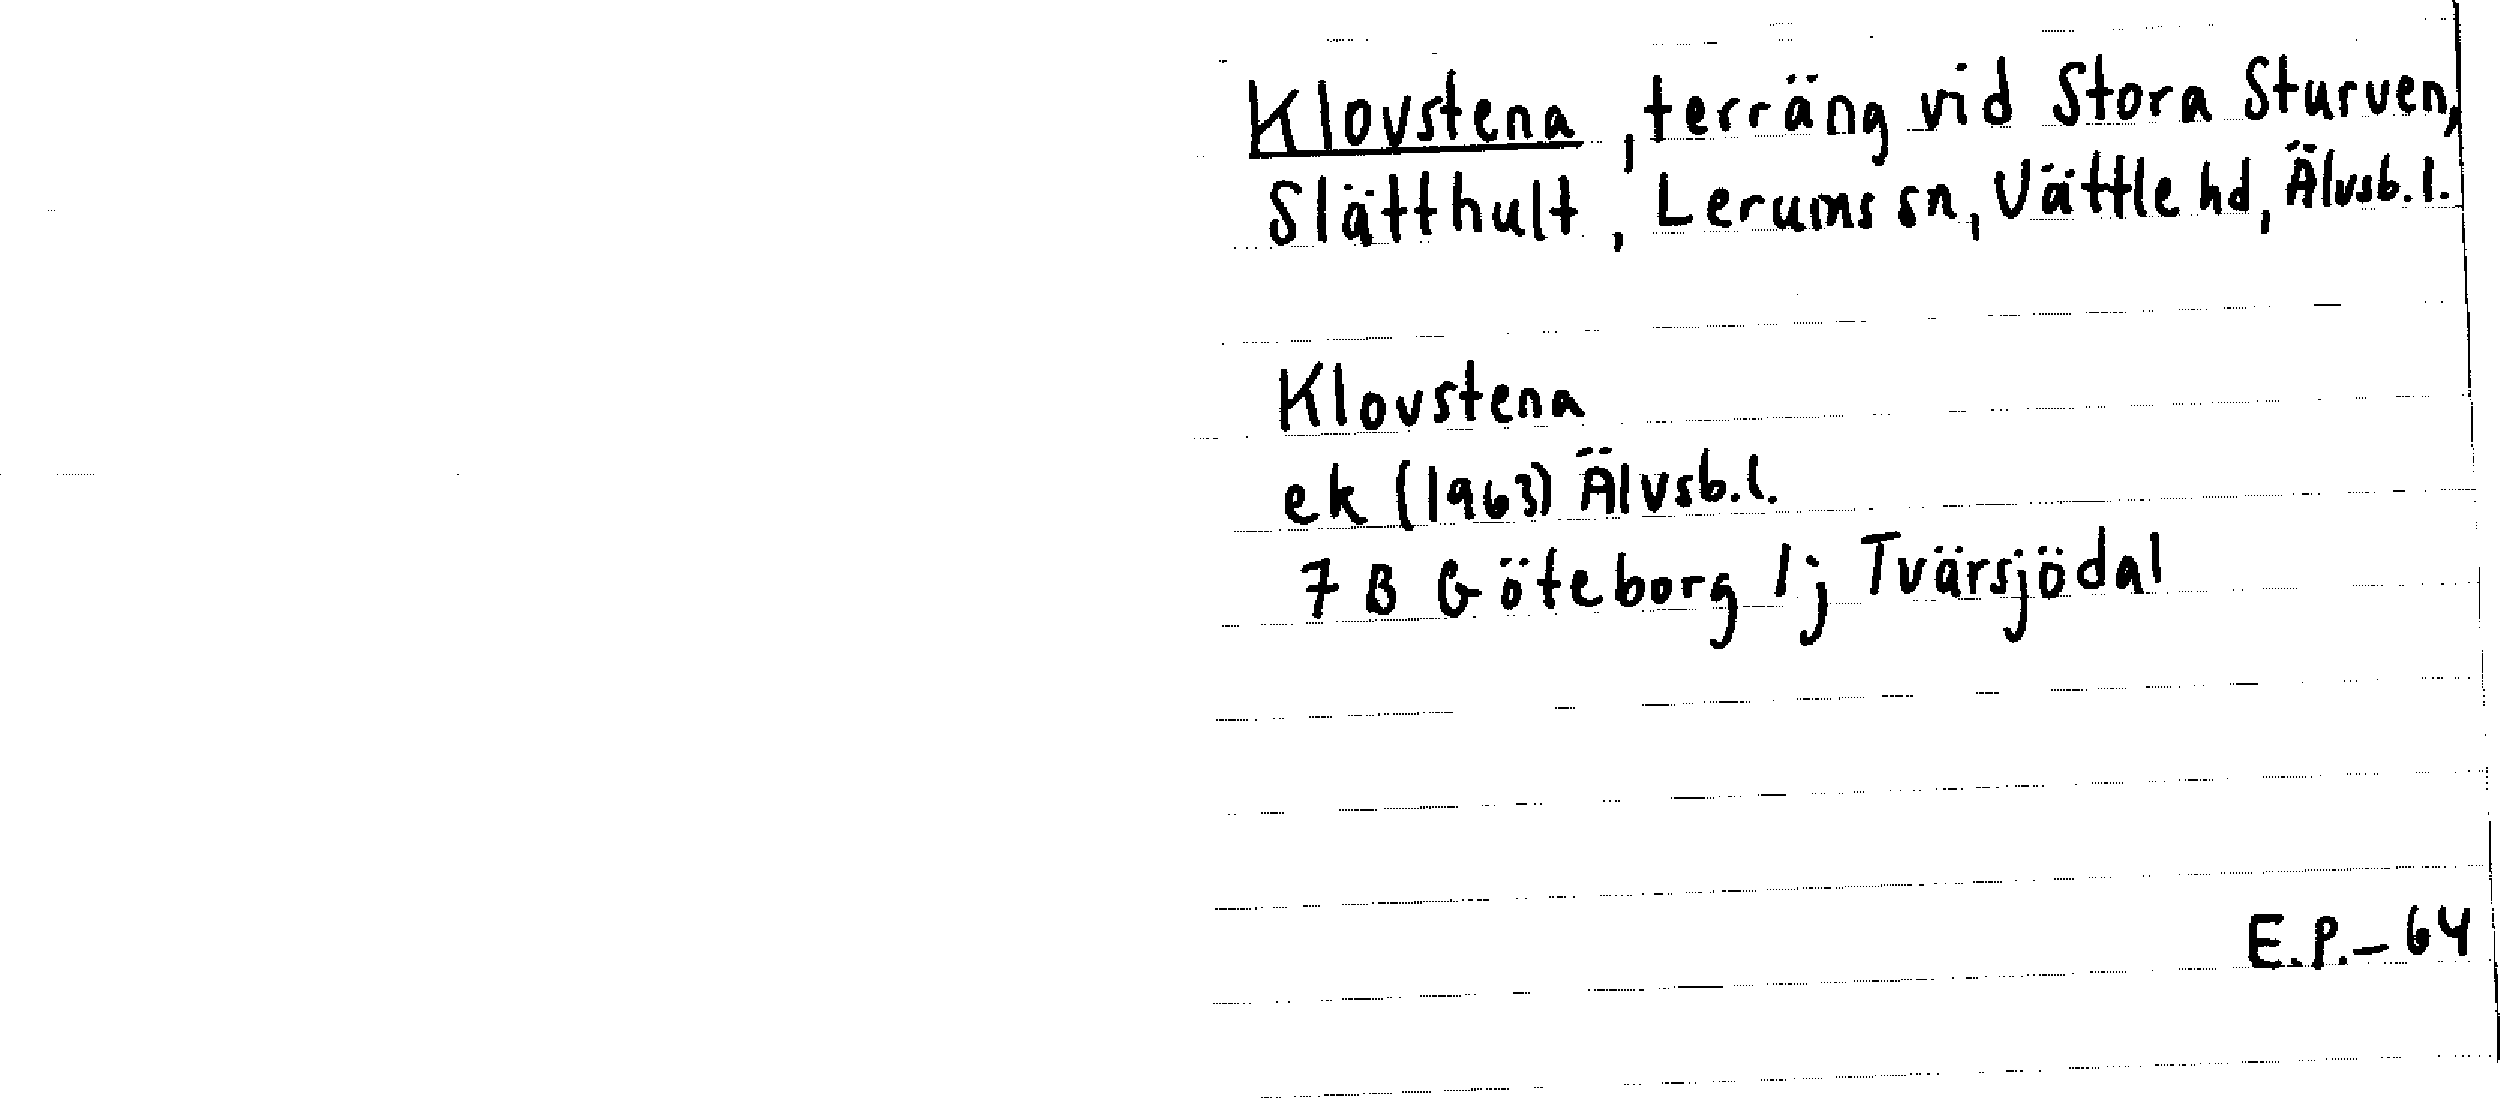 Klovstena, terräng vid Stora Sturven,
Slätthult, Lerums sn, Vättle hd, Älvsb. l.
Klovstena
ek (1963) Älvsb. l.
7 B Göteborg 1j Tvärsjödal
E.P. – 64